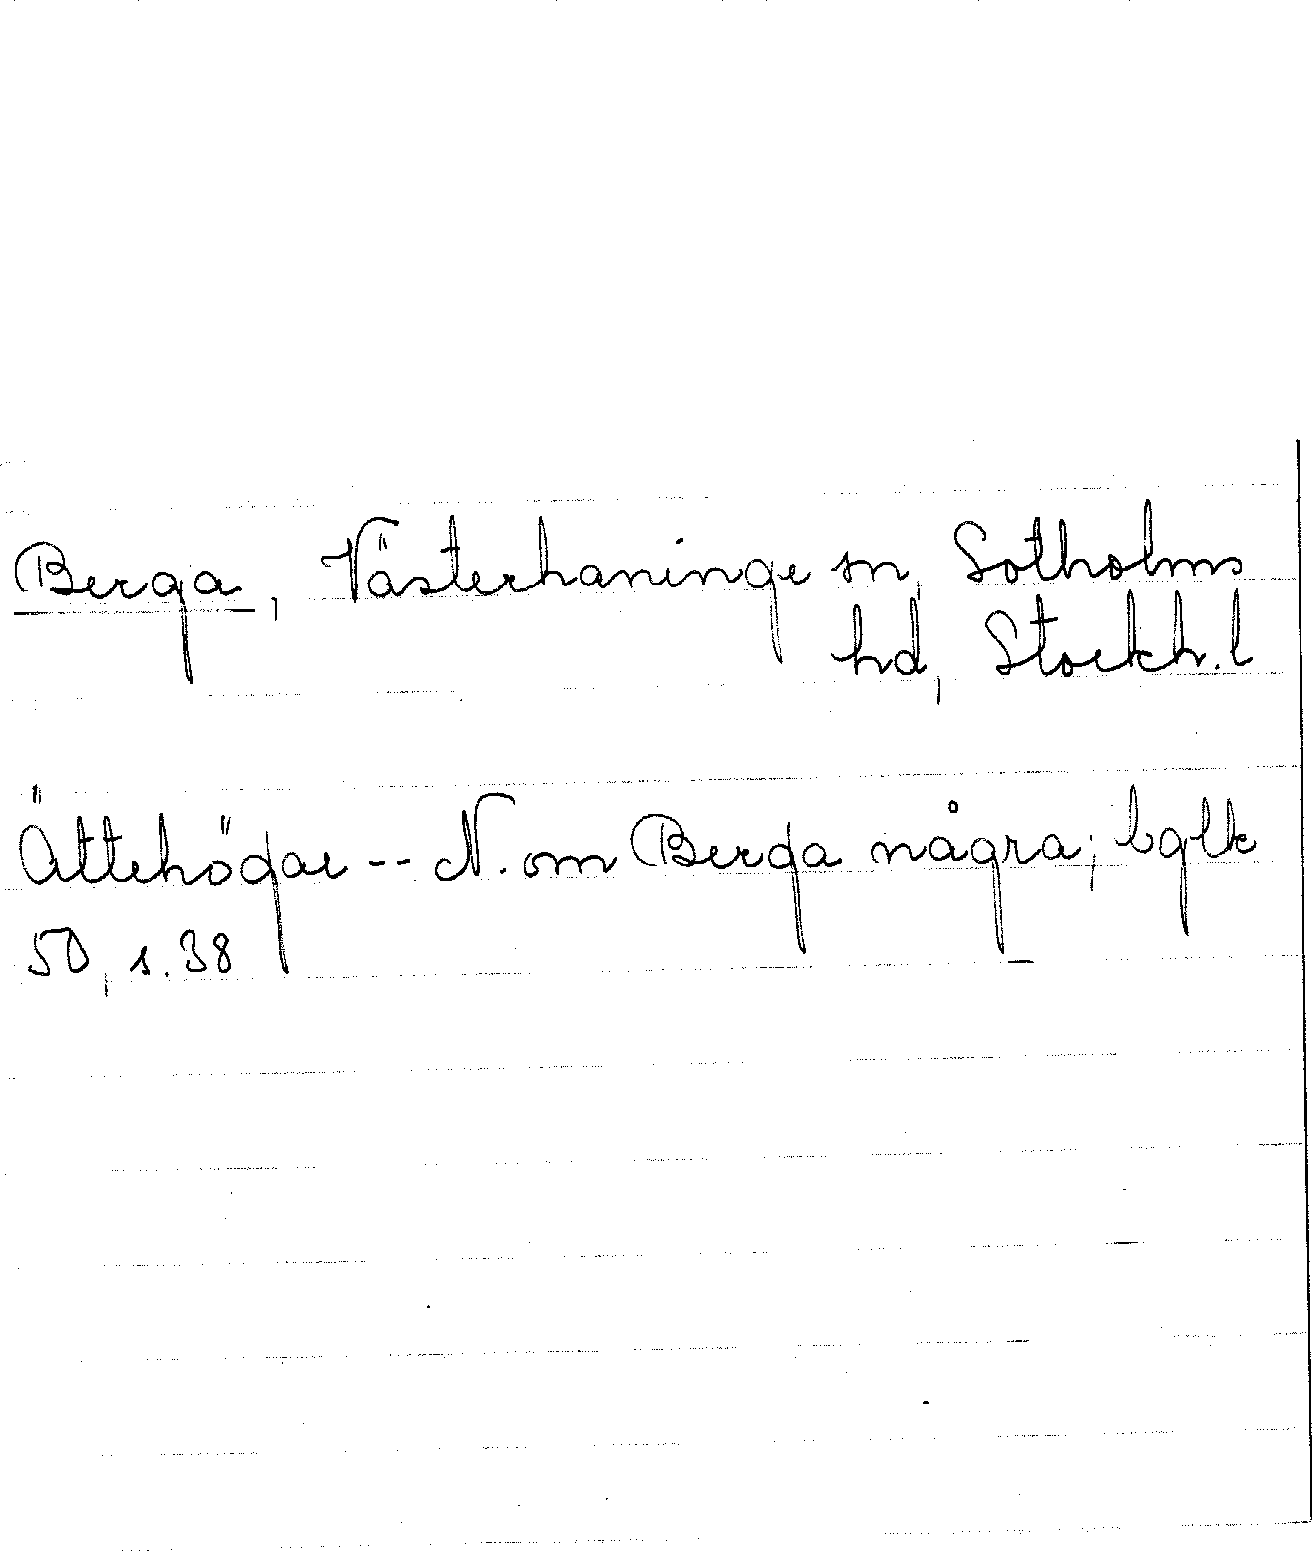 Berga, Västerhaninge sn, Sotholms
hd, Stockh. l
Ättehögar -- N. om Berga några; bglk
50, s. 38